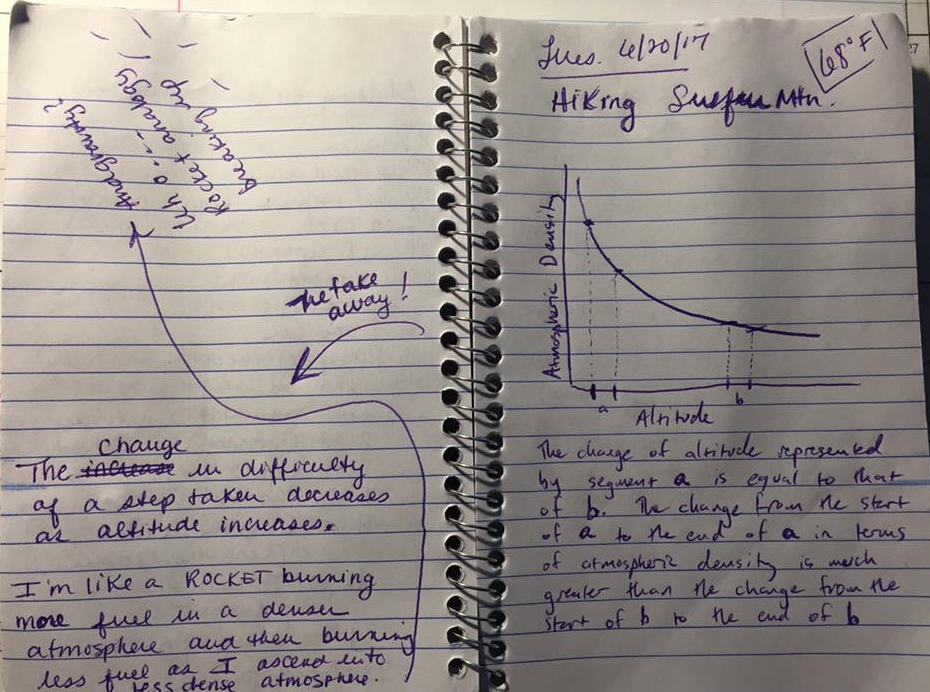 Uh o....
Rocket analogy
breaking up
the take
away!
Change
The increase in difficulty
of a step taken decreases
as altitude increases.
I'm like a ROCKET burning
more fuel in a denser
atmosphere and then burning
less fuel as I ascend into
less dense atmosphere.
Tues. 6/20/17
68°F
Hiking Mtn.
Atmospheric Density
a
b
Altitude
The change of altitude represented
by segment a is equal to that
of b. The change from the start
of a to the end of a in terms
of atmospheric density is much
greater than the change from the
start of b to the end of b
27